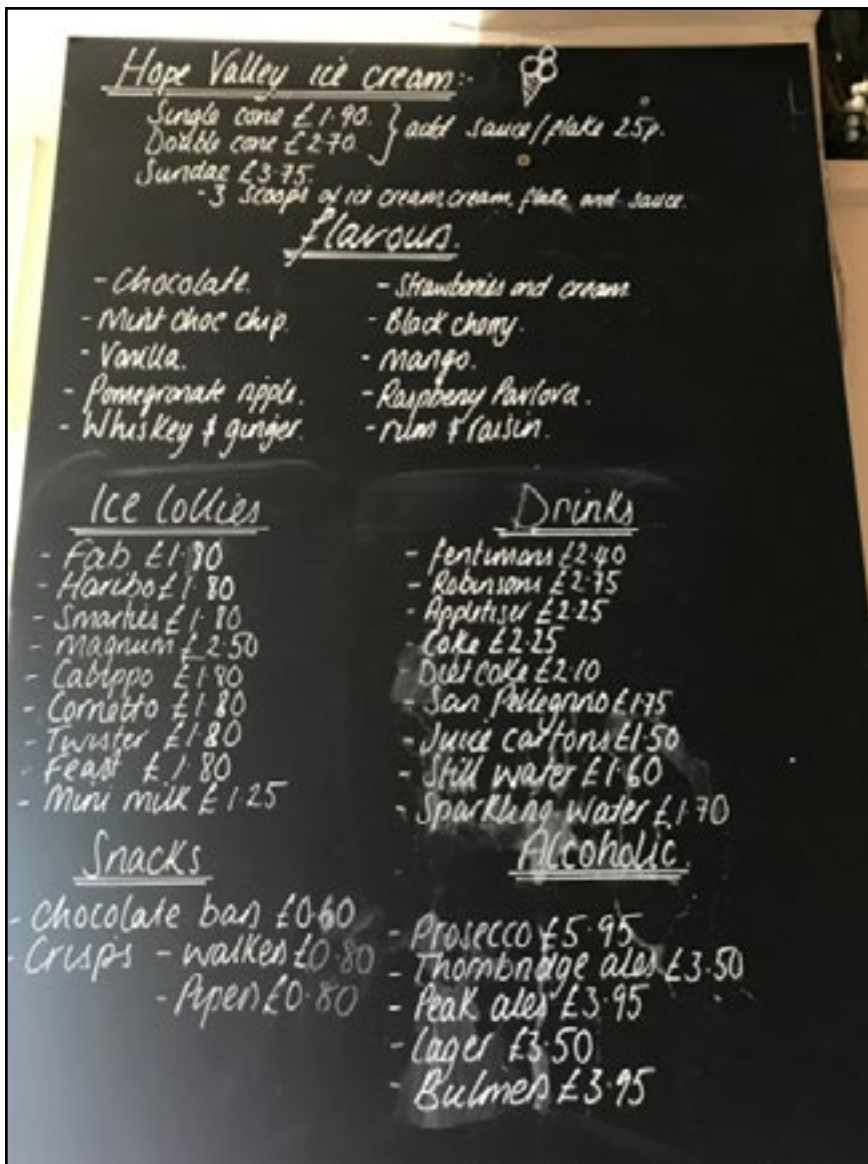 Hope Valley ice cream:-
Single cone £1.90.
Double cone £2.70.
} add sauce/flake 25p.
Sundae £3.75.
- 3 scoops of ice cream, cream, flake and sauce.
flavours.
- Chocolate.
- Mint choc chip.
- Vanilla.
- Pomegranate ripple.
- Whiskey & ginger.
- Strawberries and cream
- Black cherry.
- mango.
- Raspberry Pavlova.
- rum & raisin.
Ice lollies
- Fab £1.80
- Haribo £1.80
- Smarties £1.80
- Magnum £2.50
- Calippo £1.80
- Cornetto £1.80
- Twister £1.80
- Feast £1.80
- Mini milk £1.25
Drinks
- fentimans £2.40
- Robinsons £2.75
- Appletiser £2.25
- Coke £2.25
- Diet coke £2.10
- San Pellegrino £1.75
- Juice cartons £1.50
- Still water £1.60
- Sparkling water £1.70
Snacks
- Chocolate bars £0.60
- Crisps - walkers £0.80
- Pipers £0.80
Alcoholic.
- Prosecco £5.95
- Thornbridge ales £3.50
- Peak ales £3.95
- Lager £3.50
- Bulmers £3.95